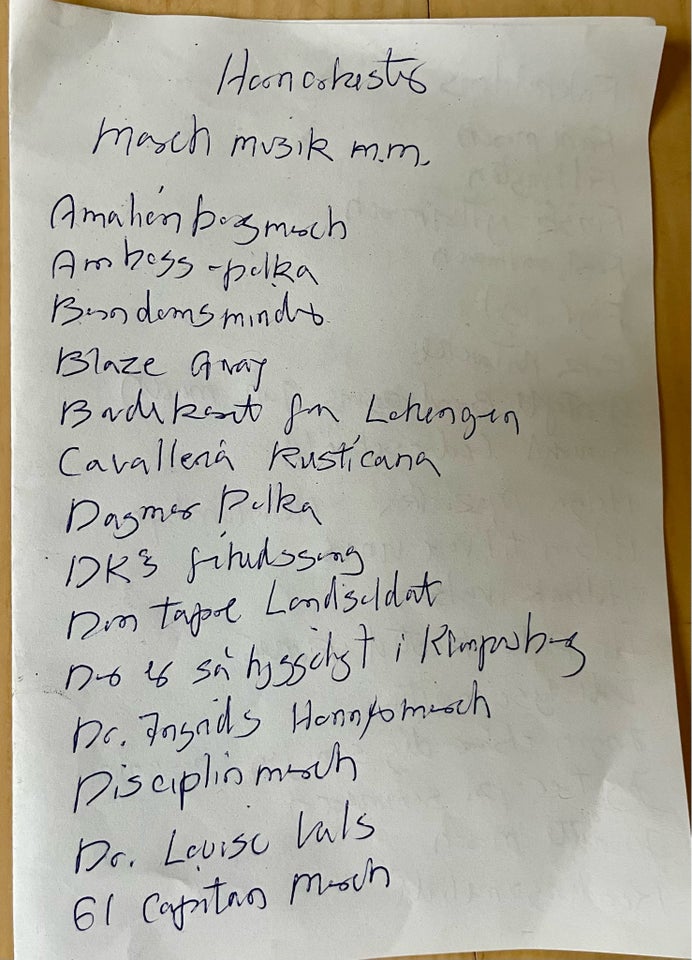 Hornorkester
March musik m.m.
Amalienborgmarch
Amboss-polka
Barndomsminder
Blaze Away
Brudekoret fra Lohengrin
Cavalleria Rusticana
Dagmar Polka
DKs fritidssang
Den tapre Landsoldat
Der er så hyggeligt i Klampenborg
Dr. Ingrids Honnørmarch
Disciplin march
Dr. Louise Vals
El Capitan March